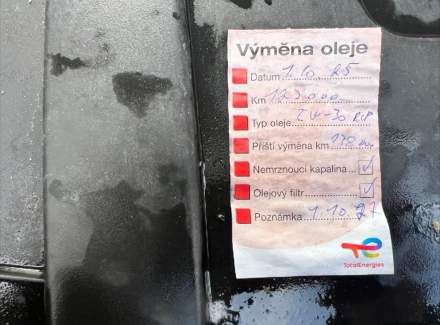 Výměna oleje
Datum 1.10. 25
Km 123000
Typ oleje
Příští výměna km
Nemrznoucí kapalina ✓
Olejový filtr ✓
Poznámka 1.10. 27
TotalEnergies